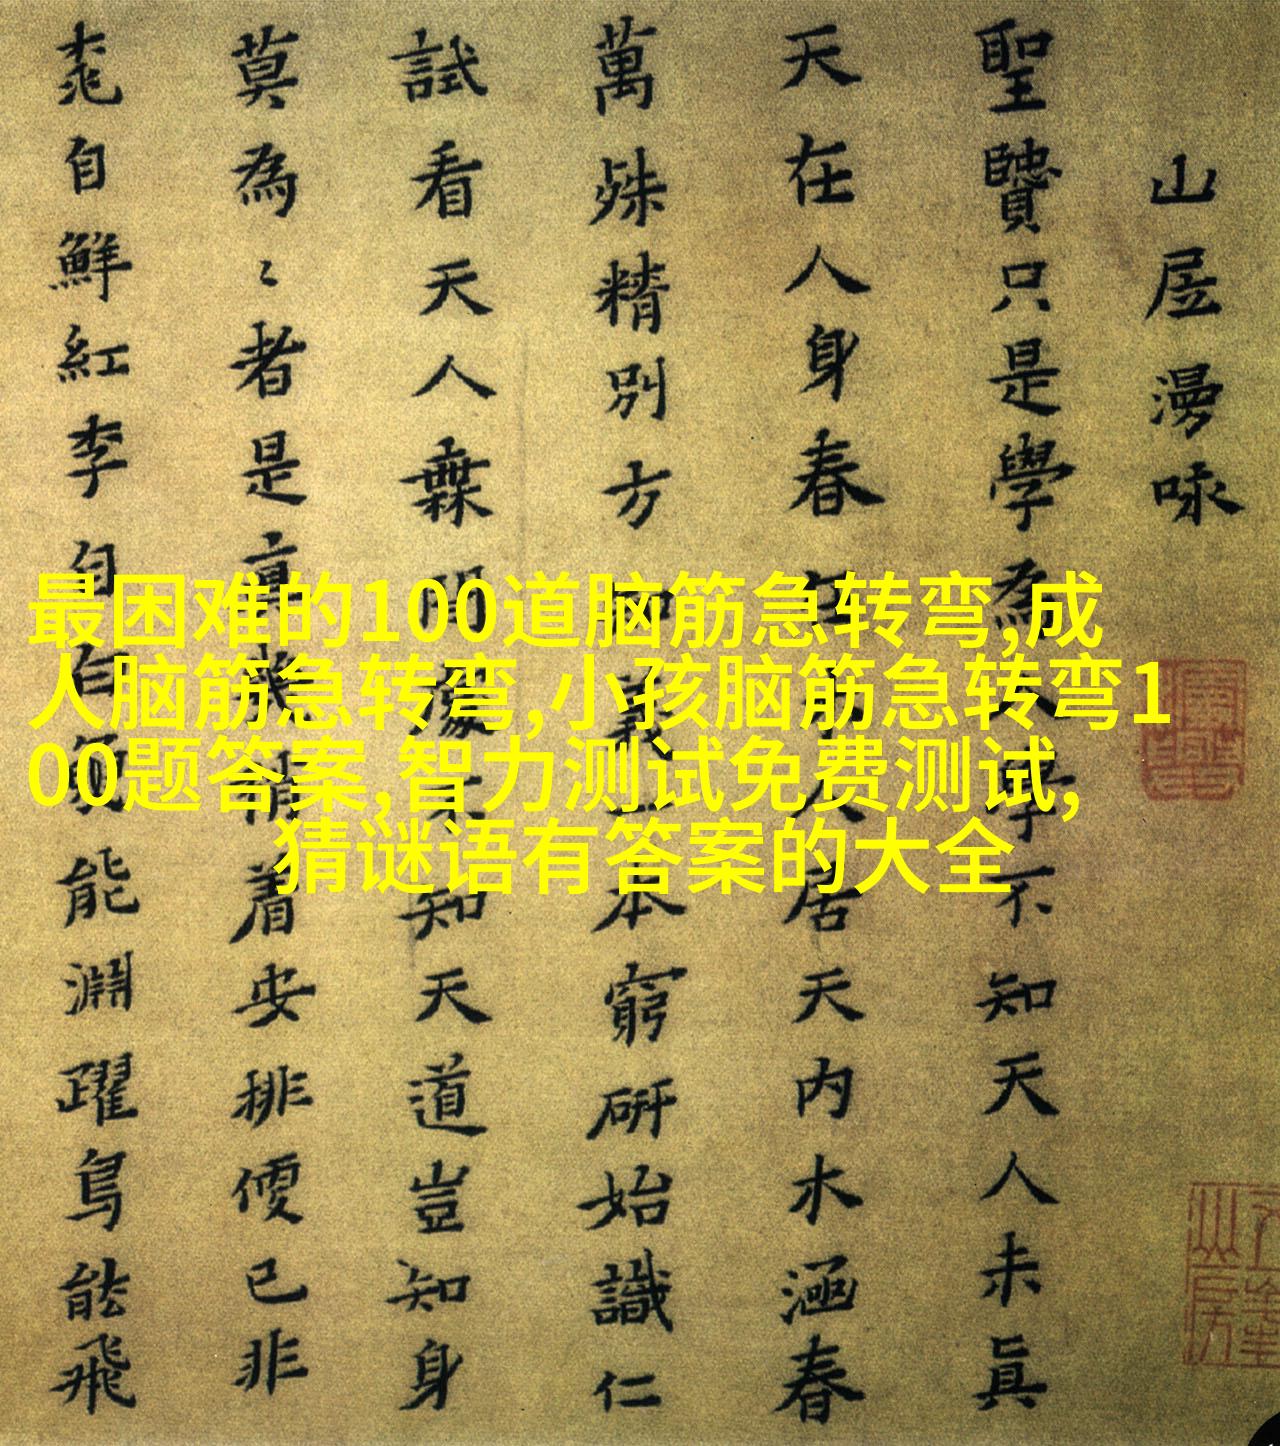 山居漫咏
聖贒只是學為人學不知天人未眞
天在人身春 人居天内水涵春
萬殊精別方 義 本窮研始識仁
試看天人 間 知天道豈知身
莫為〻者是 着安排便已非
桃自鮮紅李自白魚能淵躍鳥能飛
最困难的100道脑筋急转弯,成
人脑筋急转弯,小孩脑筋急转弯1
00题答案,智力测试免费测试,
猜谜语有答案的大全